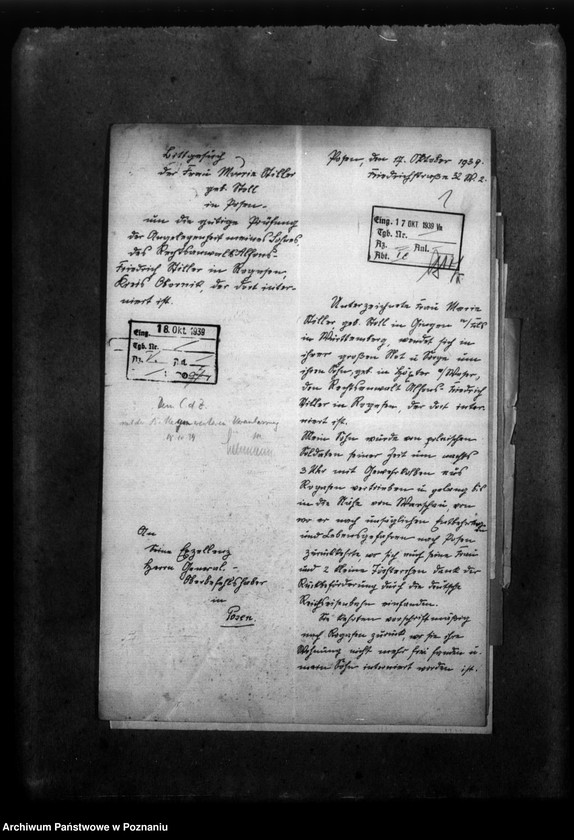 Bittgesuch
der Frau Marie Stiller
geb. Stoll
in Posen.
um die gütige Prüfung
der Angelegenheit meines Sohnes,
des Rechtsanwalts Alfons-
Friedrich Stiller in Rogasen,
Kreis Obornik, der dort inter-
niert ist.
Eing. 18. Okt. 1939
Tgb. Nr.
Az.
Dem C.d.Z.
An
Seine Exzellenz
Herrn General-
Oberbefehlshaber
in
Posen.
Posen, den 17. Oktober 1939.
Friedrichstraße 32 W. 2.
Eing. 17 OKT 1939 Vm
Tgb. Nr.
Az. Anl.
Abt.
Unterzeichnete Frau Marie
Stiller geb. Stoll in
in Württemberg, wendet sich in
ihrer großen Not u. Sorge um
ihren Sohn, geb. in Höxter a/Weser,
den Rechtsanwalt Alfons-Friedrich
Stiller in Rogasen, der dort inter-
niert ist.
Mein Sohn wurde von polnischen
Soldaten seiner Zeit um nachts
3 Uhr mit Gewehrkolben aus
Rogasen vertrieben u. gelang bis
in die Nähe von Warschau von
wo er nach unsäglichen Entbehrungen
und Lebensgefahren nach Posen
zurückkehrte wo sich auch seine Frau
und 2 kleine Töchterchen dank der
Rückbeförderung durch die deutsche
Reichseisenbahn einfanden.
Sie kehrten vorschriftmässig
nach Rogasen zurück, wo sie ihre
Wohnung nicht mehr frei fanden u.
mein Sohn interniert worden ist.
Archiwum Państwowe w Poznaniu